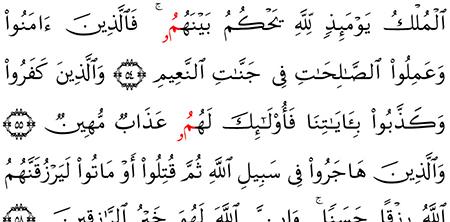 ٱلْمُلْكُ يَوْمَئِذٍ لِّلَّهِ يَحْكُمُ بَيْنَهُمُۥ ۚ فَٱلَّذِينَ ءَامَنُوا۟
وَعَمِلُوا۟ ٱلصَّـٰلِحَـٰتِ فِى جَنَّـٰتِ ٱلنَّعِيمِ ۝٥٤ وَٱلَّذِينَ كَفَرُوا۟
وَكَذَّبُوا۟ بِـَٔايَـٰتِنَا فَأُو۟لَـٰٓئِكَ لَهُمُۥ عَذَابٌ مُّهِينٌ ۝٥٥
وَٱلَّذِينَ هَاجَرُوا۟ فِى سَبِيلِ ٱللَّهِ ثُمَّ قُتِلُوٓا۟ أَوْ مَاتُوا۟ لَيَرْزُقَنَّهُمُ
ٱللَّهُ رِزْقًا حَسَنًا ۚ وَإِنَّ ٱللَّهَ لَهُوَ خَيْرُ ٱلرَّٰزِقِينَ ۝٥٦